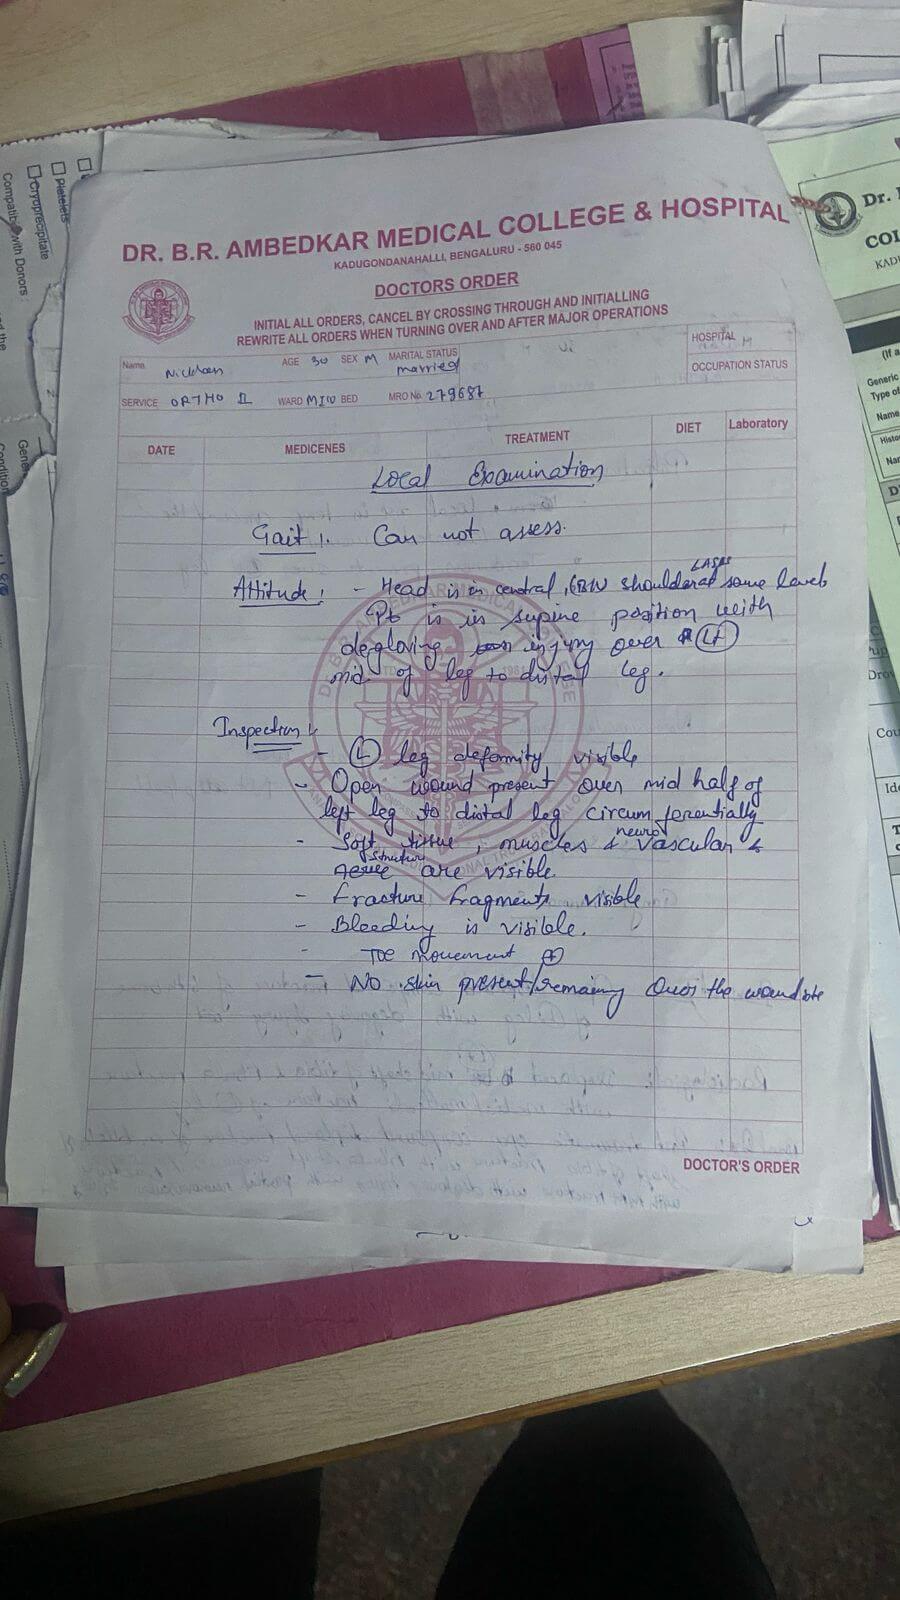 DR. B.R. AMBEDKAR MEDICAL COLLEGE & HOSPITAL
KADUGONDANAHALLI, BENGALURU - 560 045
DOCTORS ORDER
INITIAL ALL ORDERS, CANCEL BY CROSSING THROUGH AND INITIALLING
REWRITE ALL ORDERS WHEN TURNING OVER AND AFTER MAJOR OPERATIONS
Name AGE 30 SEX M MARITAL STATUS married HOSPITAL
OCCUPATION STATUS
SERVICE ORTHO II WARD BED MRO No. 279687
DATE MEDICENES TREATMENT DIET Laboratory
Local Examination
Gait :. Can not assess.
Attitude : - Head is in central, shoulder at same level
Pt is in supine position with
degloving injury over (Lt)
mid of leg to distal leg.
Inspection :
- (L) leg deformity visible
- Open wound present over mid half of
left leg to distal leg circumferentially
- Soft tissue, muscles & neurovascular
structure are visible.
- Fracture fragments visible
- Bleeding is visible.
- Toe movement (+)
- No skin present/remaining over the wound site
DOCTOR'S ORDER
Compatible with Donors
Cryoprecipitate
Platelets
Dr.
COL
KADU
(If a
Generic
Type of
Name